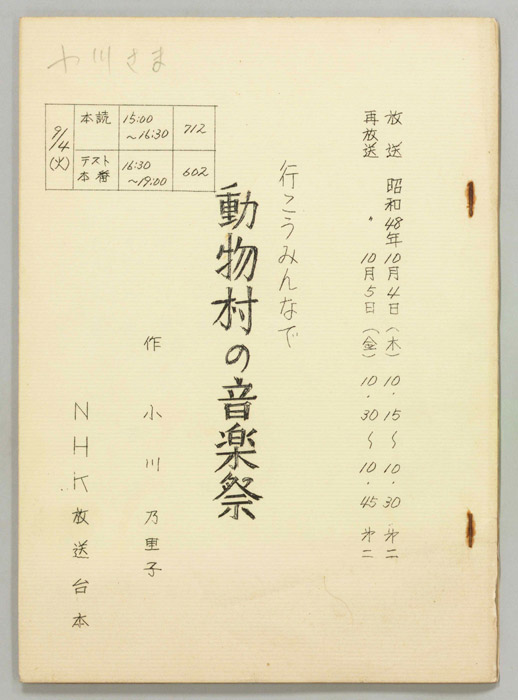 小川さま
放送 昭和48年10月4日(木) 10.15～10.30 第二
再放送 〃 10月5日(金) 10.30～10.45 第二
行こうみんなで
動物村の音楽祭
作 小川乃里子
NHK放送台本
9/4(火)
本読 15:00～16:30 712
テスト本番 16:30～19:00 602